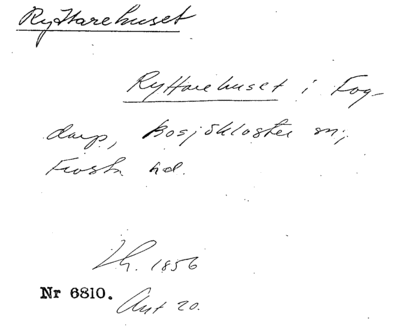 Ryttarehuset
Ryttarehuset i Fog-
darp, Bosjökloster sn;
Frosta hd.
Lh. 1856
Nr 6810.
Ant 20.